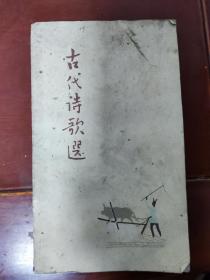 古代诗歌選